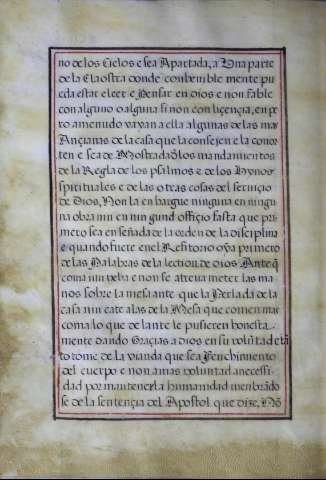 no delos Cielos e sea Apartada, a Una parte
de la Claostra donde conbenible mente pu
eda estar e leer e Pensar en dios e non fable
con alguno o alguna si non con liçençia, en pe
ro amenudo vayan a ella algunas de las mas
Ançianas de la casa que la consejen e la conor
ten e sea de Mostrada los mandamientos
de la Regla de los psalmos e de los Hynos
spirituales e de las otras cosas del seruiçio
de Dios, Non la enbargue ninguna en ningu
na obra nin en ningund offiçio fasta que pri
mero sea enseñada de la orden de la disciplina
e quando fuere en el Refitorio oya primero
de las Palabras de la lection de dios Ante q̃
coma nin veba e non se atreua meter las ma
nos sobre la mesa ante que la Perlada de la
casa nin cate alas de la Mesa que comen mas
coma lo que delante le pusieren honesta
mente dando Graçias a dios en su volũtad e tã
to tome de la vianda que sea Henchimiento
del cuerpo e non a mas voluntad a necessi
dad por mantener la humanidad menbrãdo
se de la sentençia del Apostol que dize, Nõ